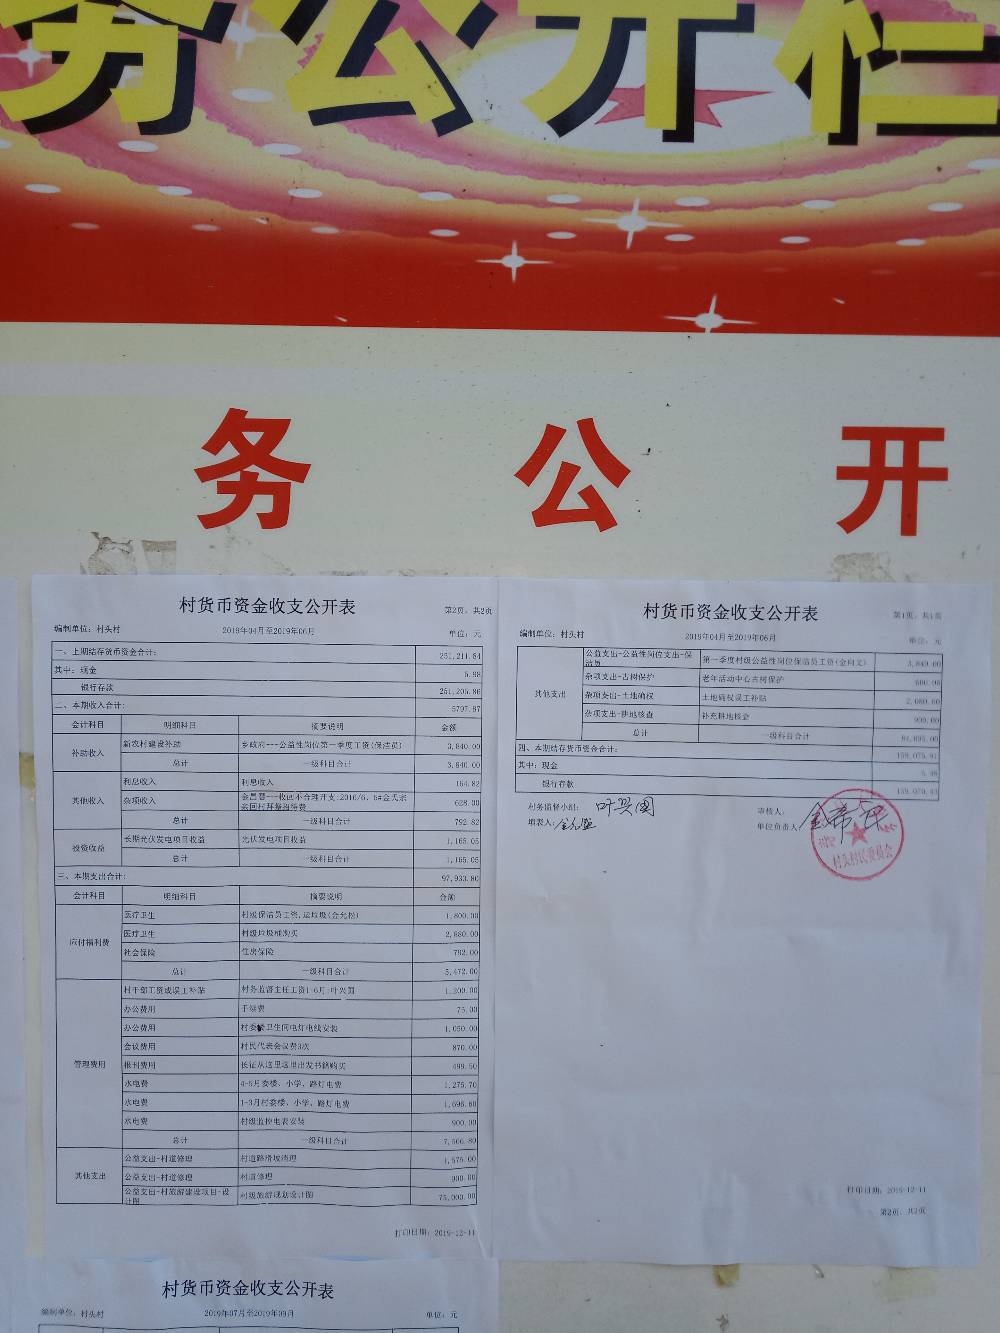 务公开栏
务公开
村货币资金收支公开表
第2页，共2页
编制单位：村头村 2019年04月至2019年06月 单位：元
一、上期结存货币资金合计： 251,211.84
其中：现金 5.98
银行存款 251,205.86
二、本期收入合计： 5797.87
会计科目 明细科目 摘要说明 金额
补助收入 新农村建设补助 乡政府---公益性岗位第一季度工资(保洁员) 3,840.00
总计 一级科目合计 3,840.00
其他收入 利息收入 利息收入 164.82
杂项收入 628.00
总计 一级科目合计 792.82
投资收益 长期光伏发电项目收益 光伏发电项目收益 1,165.05
总计 一级科目合计 1,165.05
三、本期支出合计： 97,933.80
会计科目 明细科目 摘要说明 金额
应付福利费 医疗卫生 村级保洁员工资,运垃圾(金允松) 1,800.00
医疗卫生 村级垃圾桶购买 2,880.00
社会保险 住房保险 792.00
总计 一级科目合计 5,472.00
管理费用 村干部工资或误工补贴 村务监督主任工资1-6月:叶兴国 1,200.00
办公费用 手续费 75.00
办公费用 村委楼卫生间电灯电线安装 1,050.00
会议费用 村民代表会议费3次 870.00
报刊费用 长征从这里这里出发书籍购买 499.50
水电费 4-6月委楼、小学、路灯电费 1,275.70
水电费 1-3月村委楼、小学、路灯电费 1,696.60
水电费 村级监控电表安装 900.00
总计 一级科目合计 7,566.80
其他支出 公益支出-村道修理 村道路滑坡清理 1,575.00
公益支出-村道修理 村道修理 900.00
公益支出-村旅游建设项目-设计图 村级旅游规划设计图 75,000.00
打印日期：2019-12-11
村货币资金收支公开表
第1页，共1页
编制单位：村头村 2019年04月至2019年06月 单位：元
其他支出 公益支出-公益性岗位支出-保洁员 第一季度村级公益性岗位保洁员工资(金向文) 3,840.00
杂项支出-古树保护 老年活动中心古树保护
杂项支出-土地确权 土地确权误工补贴 2,080.00
杂项支出-耕地核查 补充耕地核查 900.00
总计 一级科目合计 84,895.00
四、本期结存货币资金合计： 159,075.91
其中：现金 5.98
银行存款 159,069.93
村务监督小组： 叶兴国 审核人：
填表人： 单位负责人：
村头村民委员会
打印日期：2019-12-11
第2页，共2页
村货币资金收支公开表
编制单位：村头村 2019年07月至2019年09月 单位：元